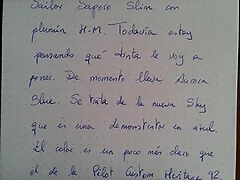 Sailor Saporo Slim con
plumín H-M. Todavía estoy
pensando qué tinta le voy a
poner. De momento lleva Aurora
Blue. Se trata de la nueva Sky
que es una demonstrator en azul.
El color es un poco más claro que
el de la Pilot Custom Heritage 92